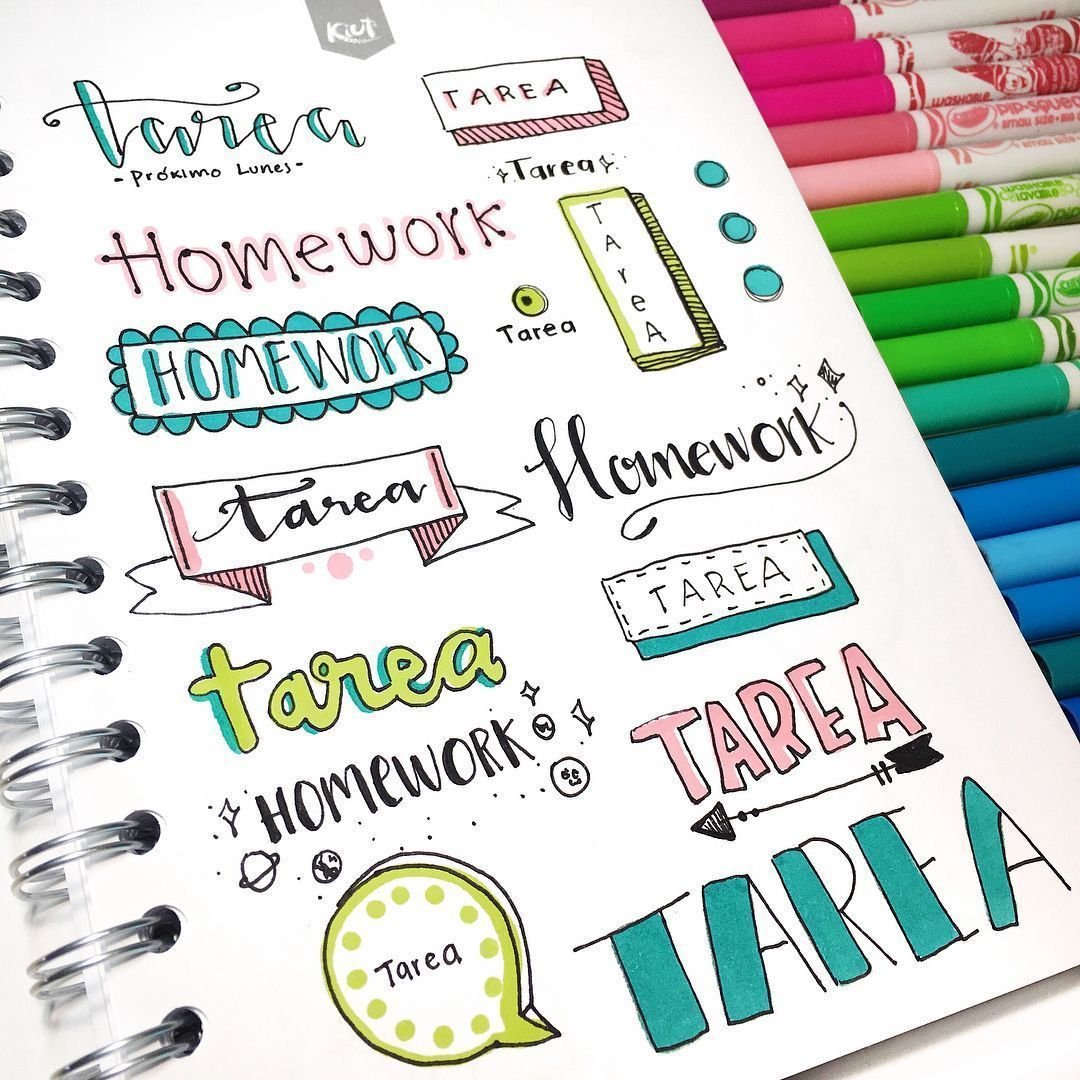 Kiut
tarea
- Próximo Lunes -
TAREA
Tarea
Homework
TAreA
Tarea
HOMEWOrK
Homework
tarea
TAREA
tarea
HOMEWORK
TAREA
Tarea
TAREA
WASHABLE
PiP-Squea
small size
washable